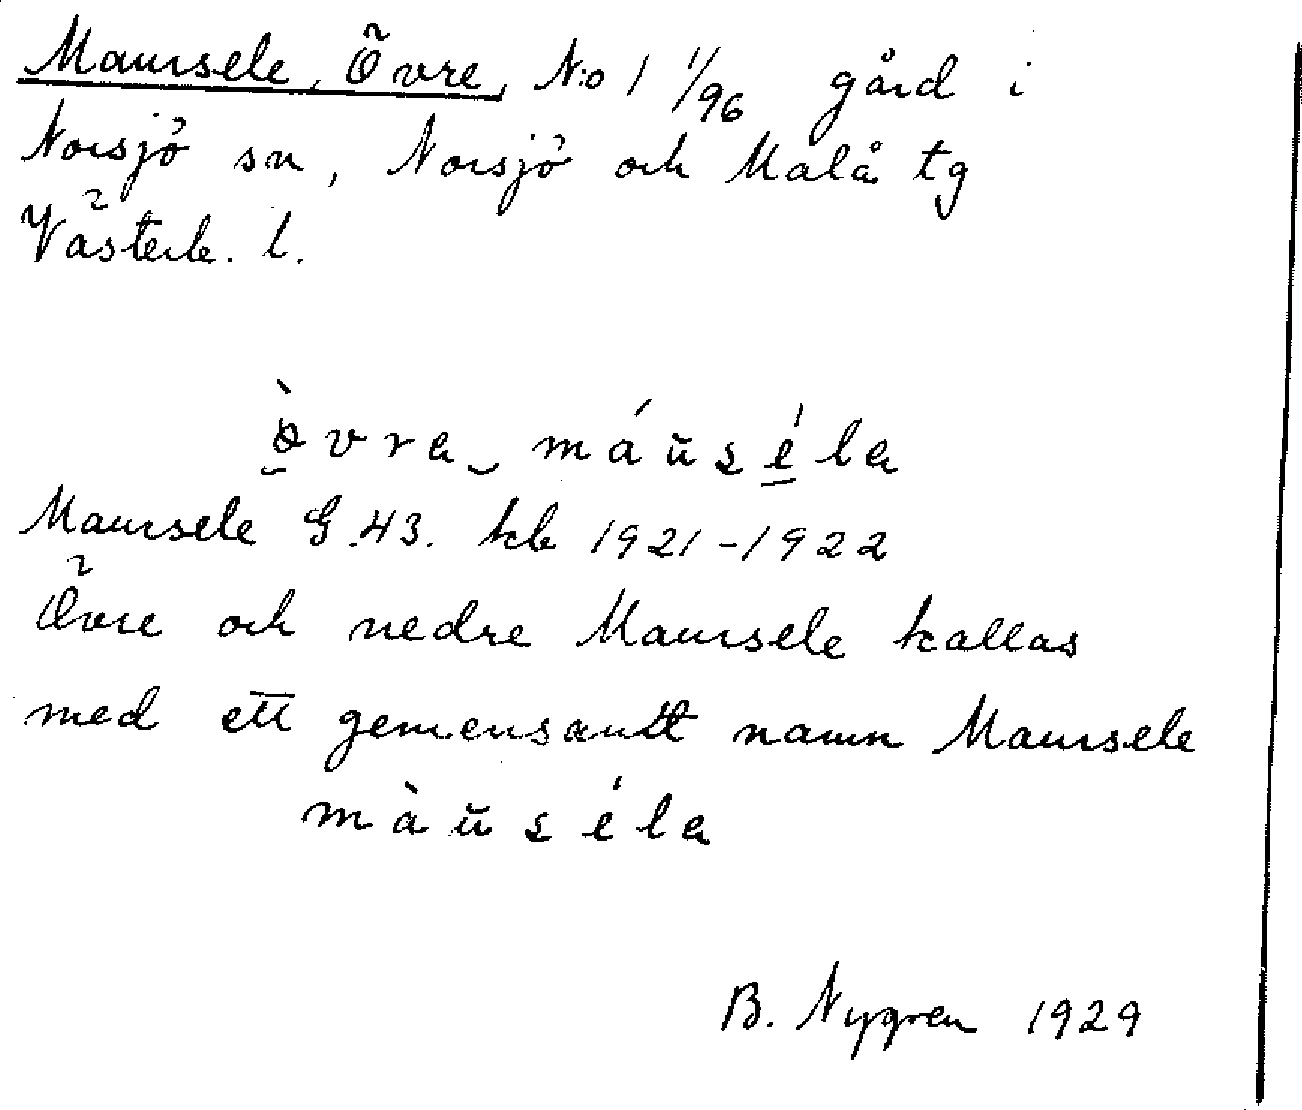 Maursele, Övre, N:o 1 1/96 gård i
Norsjö sn, Norsjö och Malå tg
Västerb. l.
ø̀vra‿ máŭséla
Maursele G.43. kb 1921-1922
Övre och nedre Maursele kallas
med ett gemensamt namn Maursele
màŭséla
B. Nygren 1929